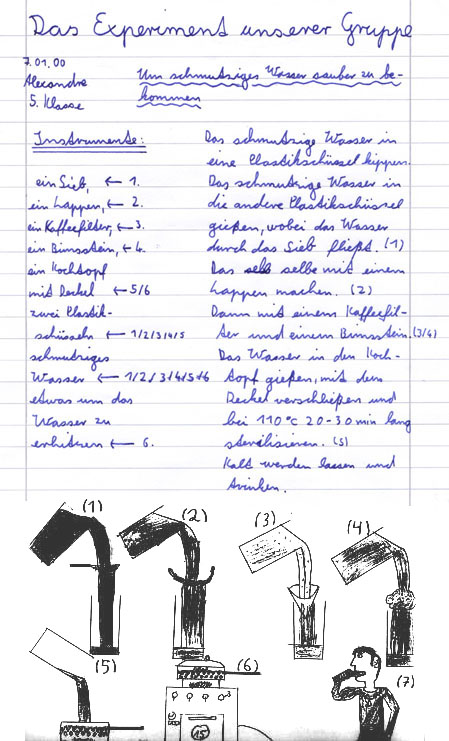 Das Experiment unserer Gruppe
7.01.00
Alexandre
5. Klasse
Um schmutziges Wasser sauber zu be-
kommen
Instrumente:
ein Sieb, ← 1.
ein Lappen, ← 2.
ein Kaffeefilter, ← 3.
ein Bimsstein, ← 4.
ein Kochtopf
mit Deckel ← 5/6
zwei Plastik-
schüsseln ← 1/2/3/4/5
schmutziges
Wasser ← 1/2/3/4/5+6
etwas um das
Wasser zu
erhitzen ← 6.
Das schmutzige Wasser in
eine Plastikschüssel kippen.
Das schmutzige Wasser in
die andere Plastikschüssel
gießen, wobei das Wasser
durch das Sieb fließt. (1)
Das selb selbe mit einem
Lappen machen. (2)
Dann mit einem Kaffeefil-
ter und einem Bimsstein. (3/4)
Das Wasser in den Koch-
topf gießen, mit dem
Deckel verschließen und
bei 110°C 20-30 min lang
sterilisieren. (5)
Kalt werden lassen und
trinken.
(1)
(2)
(3)
(4)
(5)
(6)
(7)
15